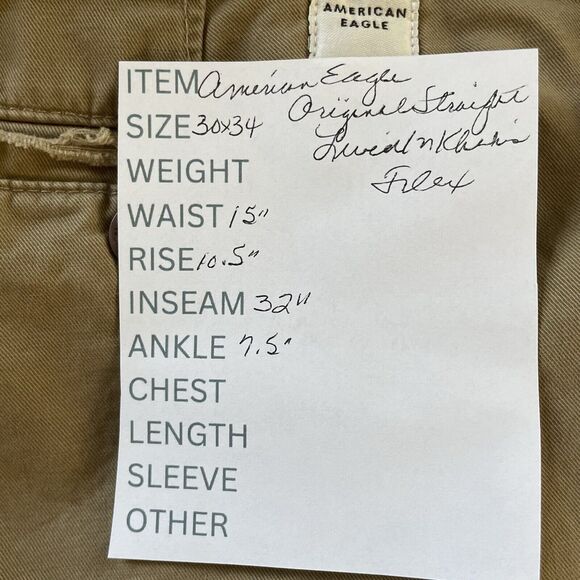 AMERICAN
EAGLE
ITEM American Eagle
Original Straight
SIZE 30x34
Lived In Khakis
WEIGHT
Flex
WAIST 15"
RISE 10.5"
INSEAM 32"
ANKLE 7.5"
CHEST
LENGTH
SLEEVE
OTHER